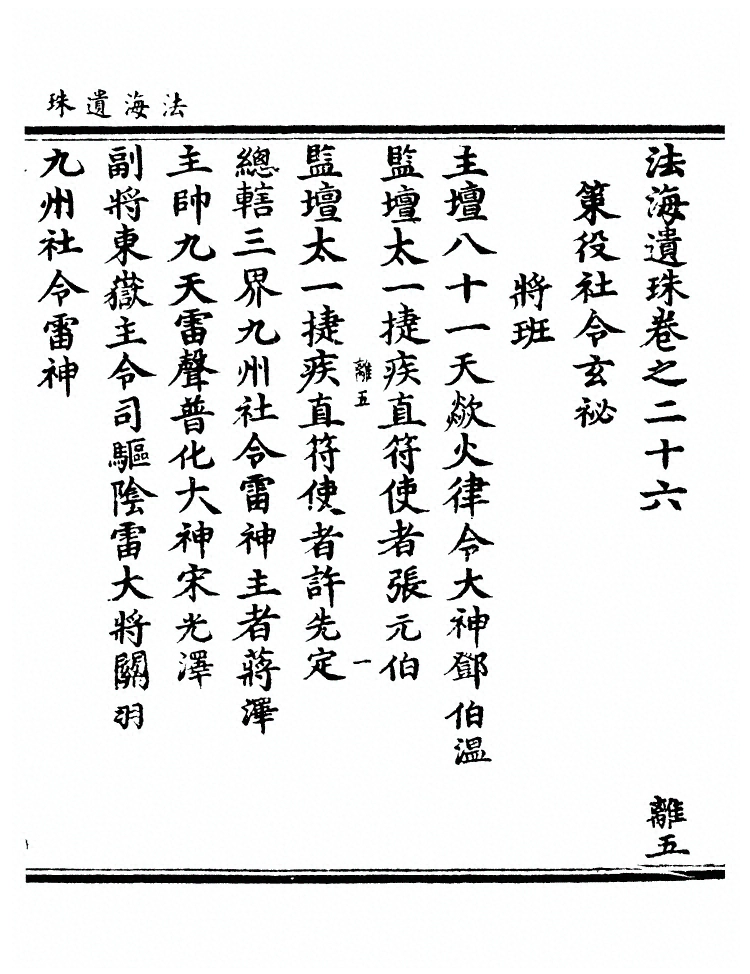 法海遺珠
法海遺珠卷之二十六 離五
策役社令玄祕
將班
主壇八十一天歘火律令大神鄧伯溫
監壇太一捷疾直符使者張元伯
離五 一
監壇太一捷疾直符使者許先定
總轄三界九州社令雷神主者蔣澤
主帥九天雷聲普化大神宋光澤
副將東嶽主令司驅陰雷大將關羽
九州社令雷神